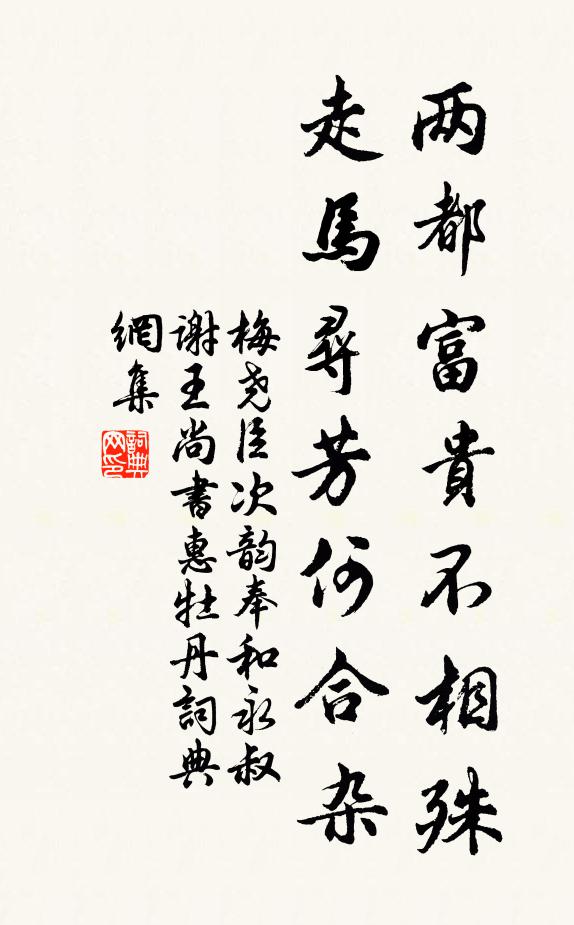 两都富貴不相殊
走馬尋芳何合杂
梅尧臣次韵奉和永叔
謝王尚書惠牡丹詞典
網集
詞典
网印